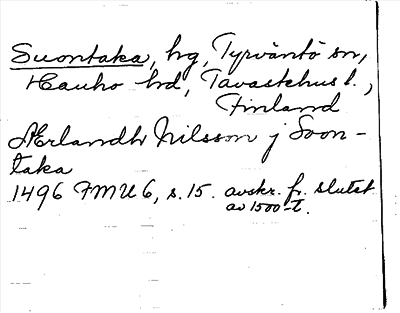 Suontaka, hg, Tyrväntö sn,
Hauho hd, Tavastehus l.,
Finland
Ærlandh Nilsson j Soon-
taka
1496 FMU 6, s. 15. avskr. fr. slutet
av 1500-t.